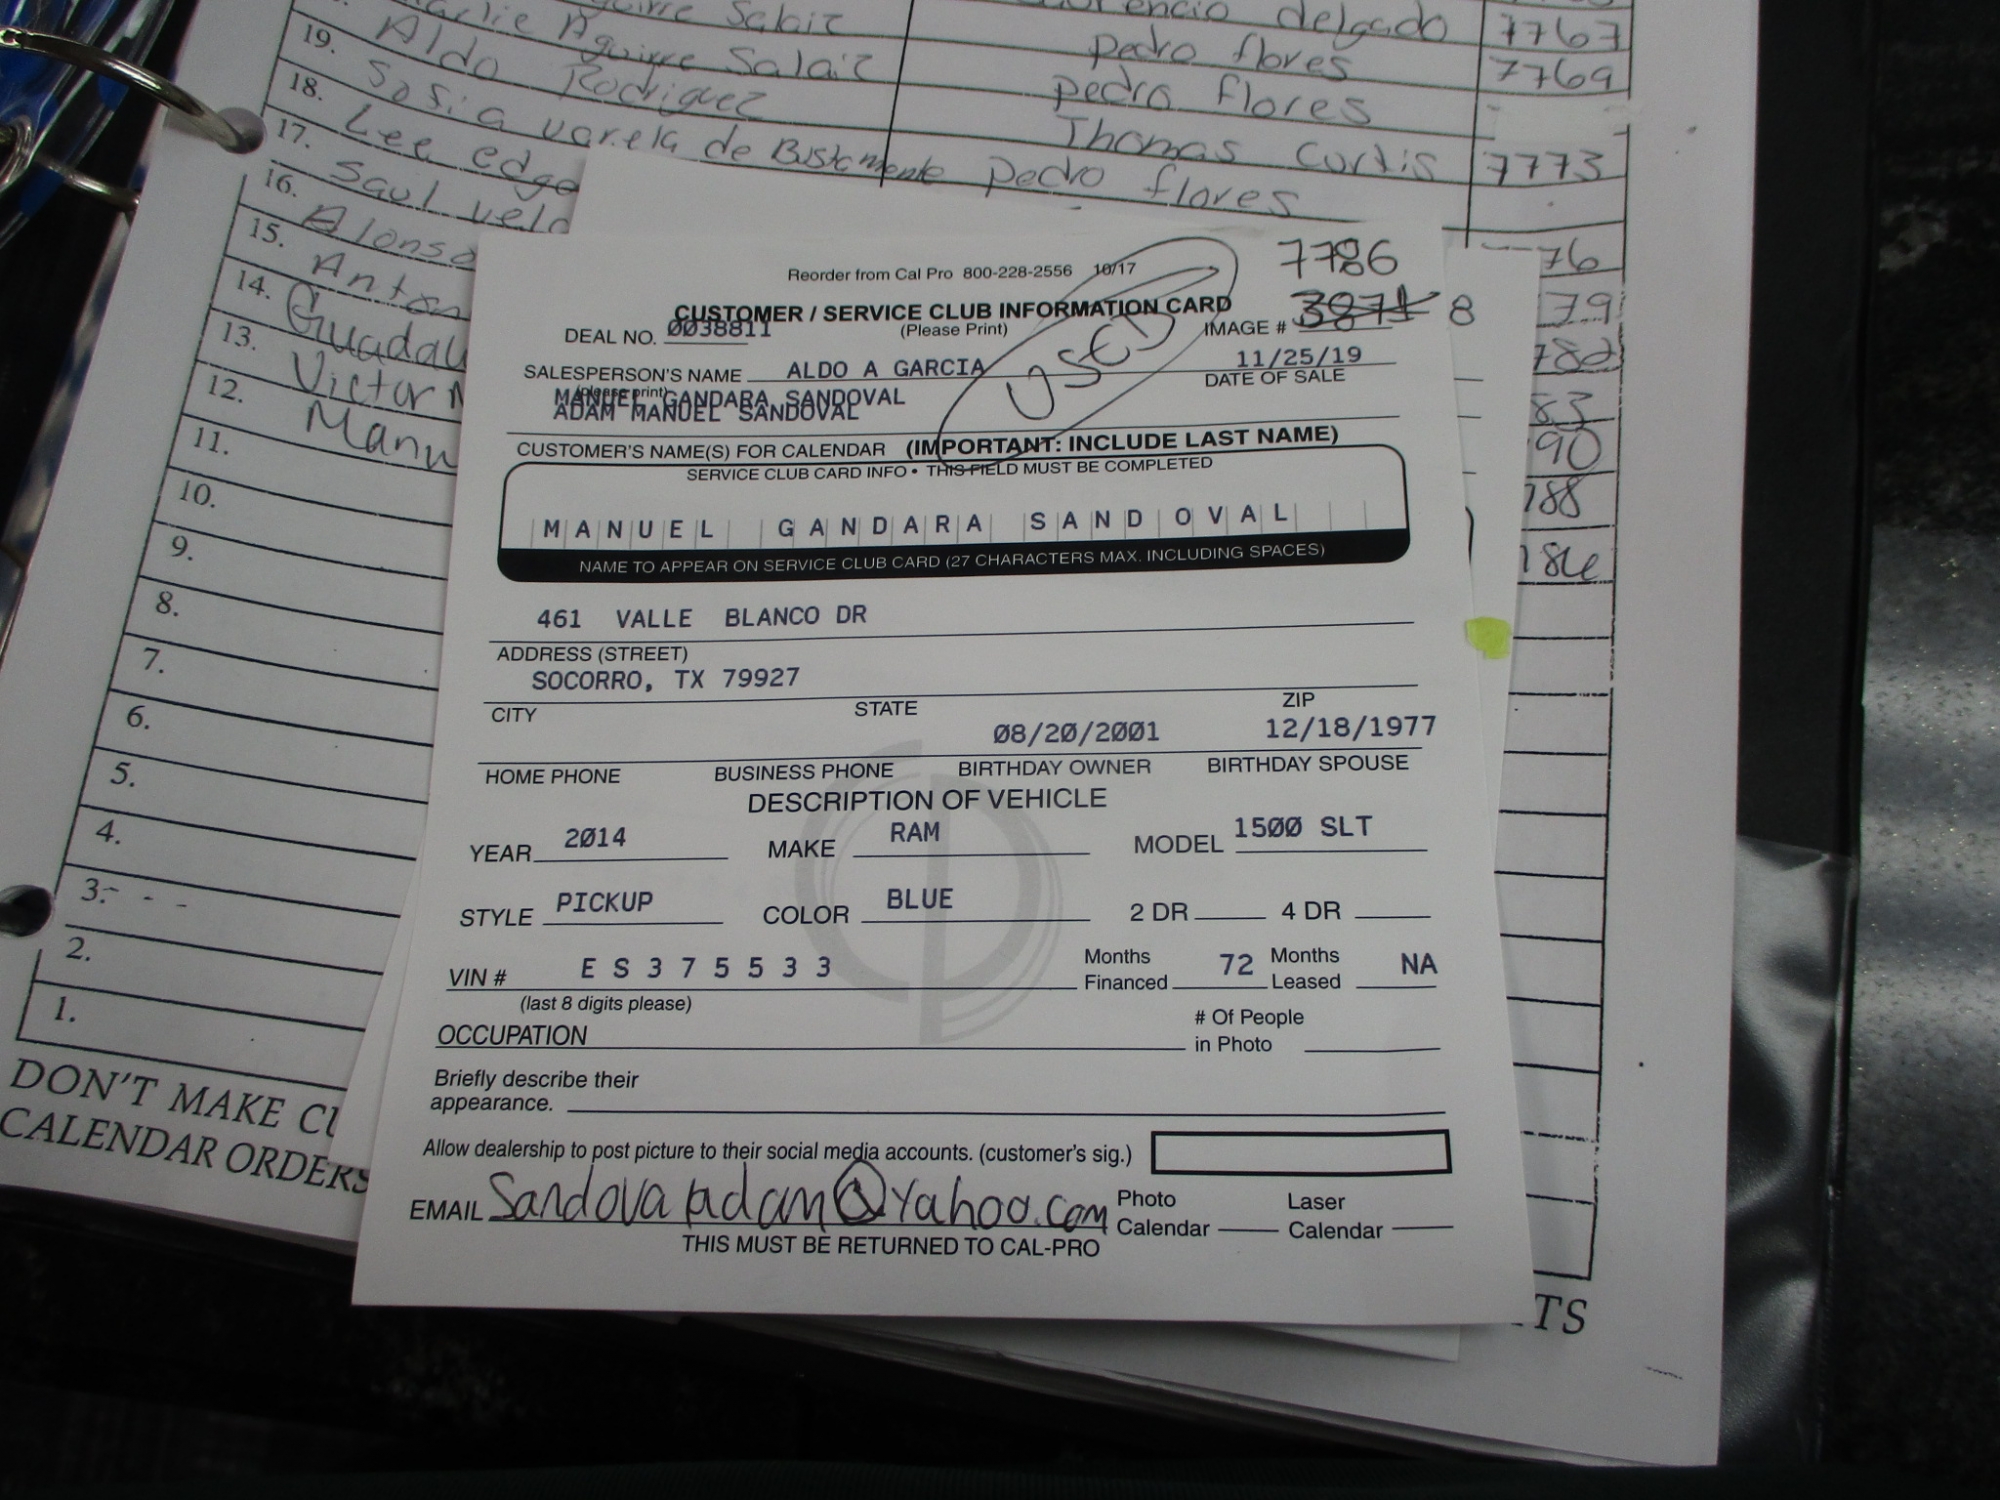 delgado 7767
Aguirre Salaiz pedro flores 7769
19. Aldo Rodriguez pedro flores
18. Sofia varela de Bustamente Thomas Curtis 7773
17. Lee edge pedro flores
16. Saul
15. Alonso
14. Anton
13. Guadalu
12. Victor
11. Manu
10.
9.
8.
7.
6.
5.
4.
3.
2.
1.
DON'T MAKE
CALENDAR ORDERS
76
79
782
83
90
788
TS
Reorder from Cal Pro 800-228-2556 10/17
7786
CUSTOMER / SERVICE CLUB INFORMATION CARD
DEAL NO. 0038811 (Please Print) IMAGE # 8
USED
SALESPERSON'S NAME ALDO A GARCIA 11/25/19
(please print) DATE OF SALE
MANUEL GANDARA SANDOVAL
ADAM MANUEL SANDOVAL
CUSTOMER'S NAME(S) FOR CALENDAR (IMPORTANT: INCLUDE LAST NAME)
SERVICE CLUB CARD INFO • THIS FIELD MUST BE COMPLETED
MANUEL GANDARA SANDOVAL
NAME TO APPEAR ON SERVICE CLUB CARD (27 CHARACTERS MAX. INCLUDING SPACES)
461 VALLE BLANCO DR
ADDRESS (STREET)
SOCORRO, TX 79927
CITY STATE ZIP
08/20/2001 12/18/1977
HOME PHONE BUSINESS PHONE BIRTHDAY OWNER BIRTHDAY SPOUSE
DESCRIPTION OF VEHICLE
YEAR 2014 MAKE RAM MODEL 1500 SLT
STYLE PICKUP COLOR BLUE 2 DR 4 DR
VIN # ES375533 Months Financed 72 Months Leased NA
(last 8 digits please)
OCCUPATION # Of People in Photo
Briefly describe their
appearance.
Allow dealership to post picture to their social media accounts. (customer's sig.)
EMAIL Sandovaladam@Yahoo.com Photo Calendar Laser Calendar
THIS MUST BE RETURNED TO CAL-PRO